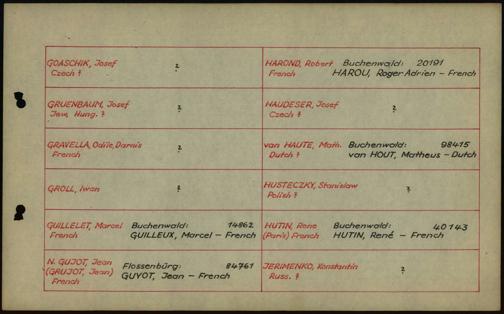 GOASCHIK, Josef ?
Czech ?
GRUENBAUM, Josef ?
Jew, Hung. ?
GRAVELLA, Odile, Darnis ?
French
GROLL, Iwan ?
GUILLELET, Marcel Buchenwald: 14862
French GUILLEUX, Marcel – French
N. GUJOT, Jean Flossenbürg: 84761
(GRUJOT, Jean) GUYOT, Jean – French
French
HAROND, Robert Buchenwald: 20191
French HAROU, Roger Adrien – French
HAUDESER, Josef ?
Czech ?
van HAUTE, Math. Buchenwald: 98415
Dutch ? van HOUT, Matheus – Dutch
HUSTECZKY, Stanislaw ?
Polish ?
HUTIN, Rene Buchenwald: 40143
(Paris) French HUTIN, René – French
JERIMENKO, Konstantin ?
Russ. ?